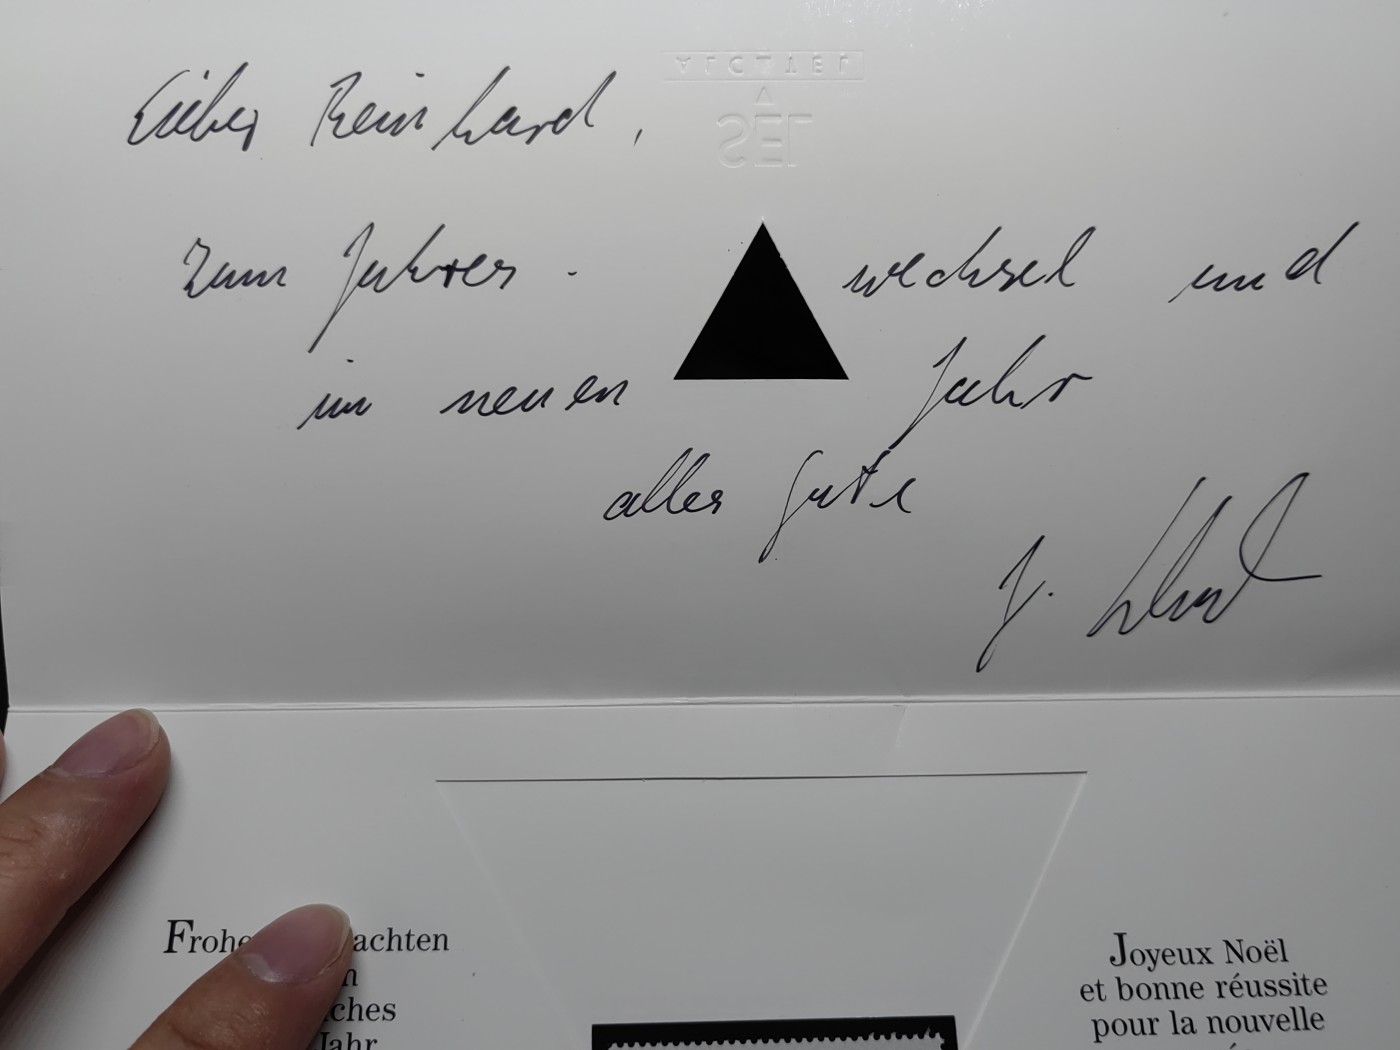 Lieber Reinhard,
ALCATEL
SEL
zum Jahres- wechsel und
im neuen Jahr
alles Gute
J.
Frohe achten
ches
Jahr
Joyeux Noël
et bonne réussite
pour la nouvelle